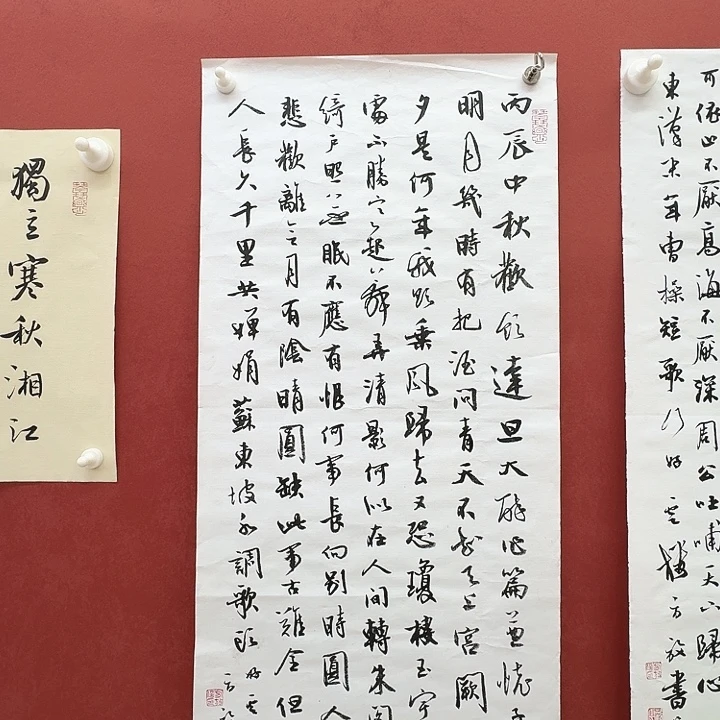 東漢末年曹操短歌行好雲樓方敘書
可依山不厭高海不厭深周公吐哺天下歸心
丙辰中秋歡飲達旦大醉作篇兼懷子
明月幾時有把酒問青天不知天上宮闕
夕是何年我欲乘風歸去又恐瓊樓玉宇
處不勝寒起舞弄清影何似在人間轉朱閣
綺戶照無眠不應有恨何事長向別時圓人
悲歡離合月有陰晴圓缺此事古難全但
人長久千里共嬋娟蘇東坡水調歌頭好雲
獨立寒秋湘江